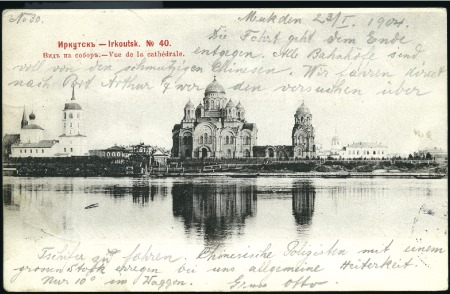 No 30.
Mukden 22/I. 1904.
Иркутскъ — Irkoutsk. № 40.
Видъ на соборъ. — Vue de la cathédrale.
Die Fahrt geht dem Ende
entgegen. Alle Bahnhöfe sind
voll von den schmutzigen Chinesen. Wir fahren direct
nach Port Arthur & von dort versuchen über
Tschifu zu fahren. Chinesische Polizisten mit einem
grossen Stock erregen bei uns allgemeine Heiterkeit.
Nur 10° im Waggon. Gruss Otto